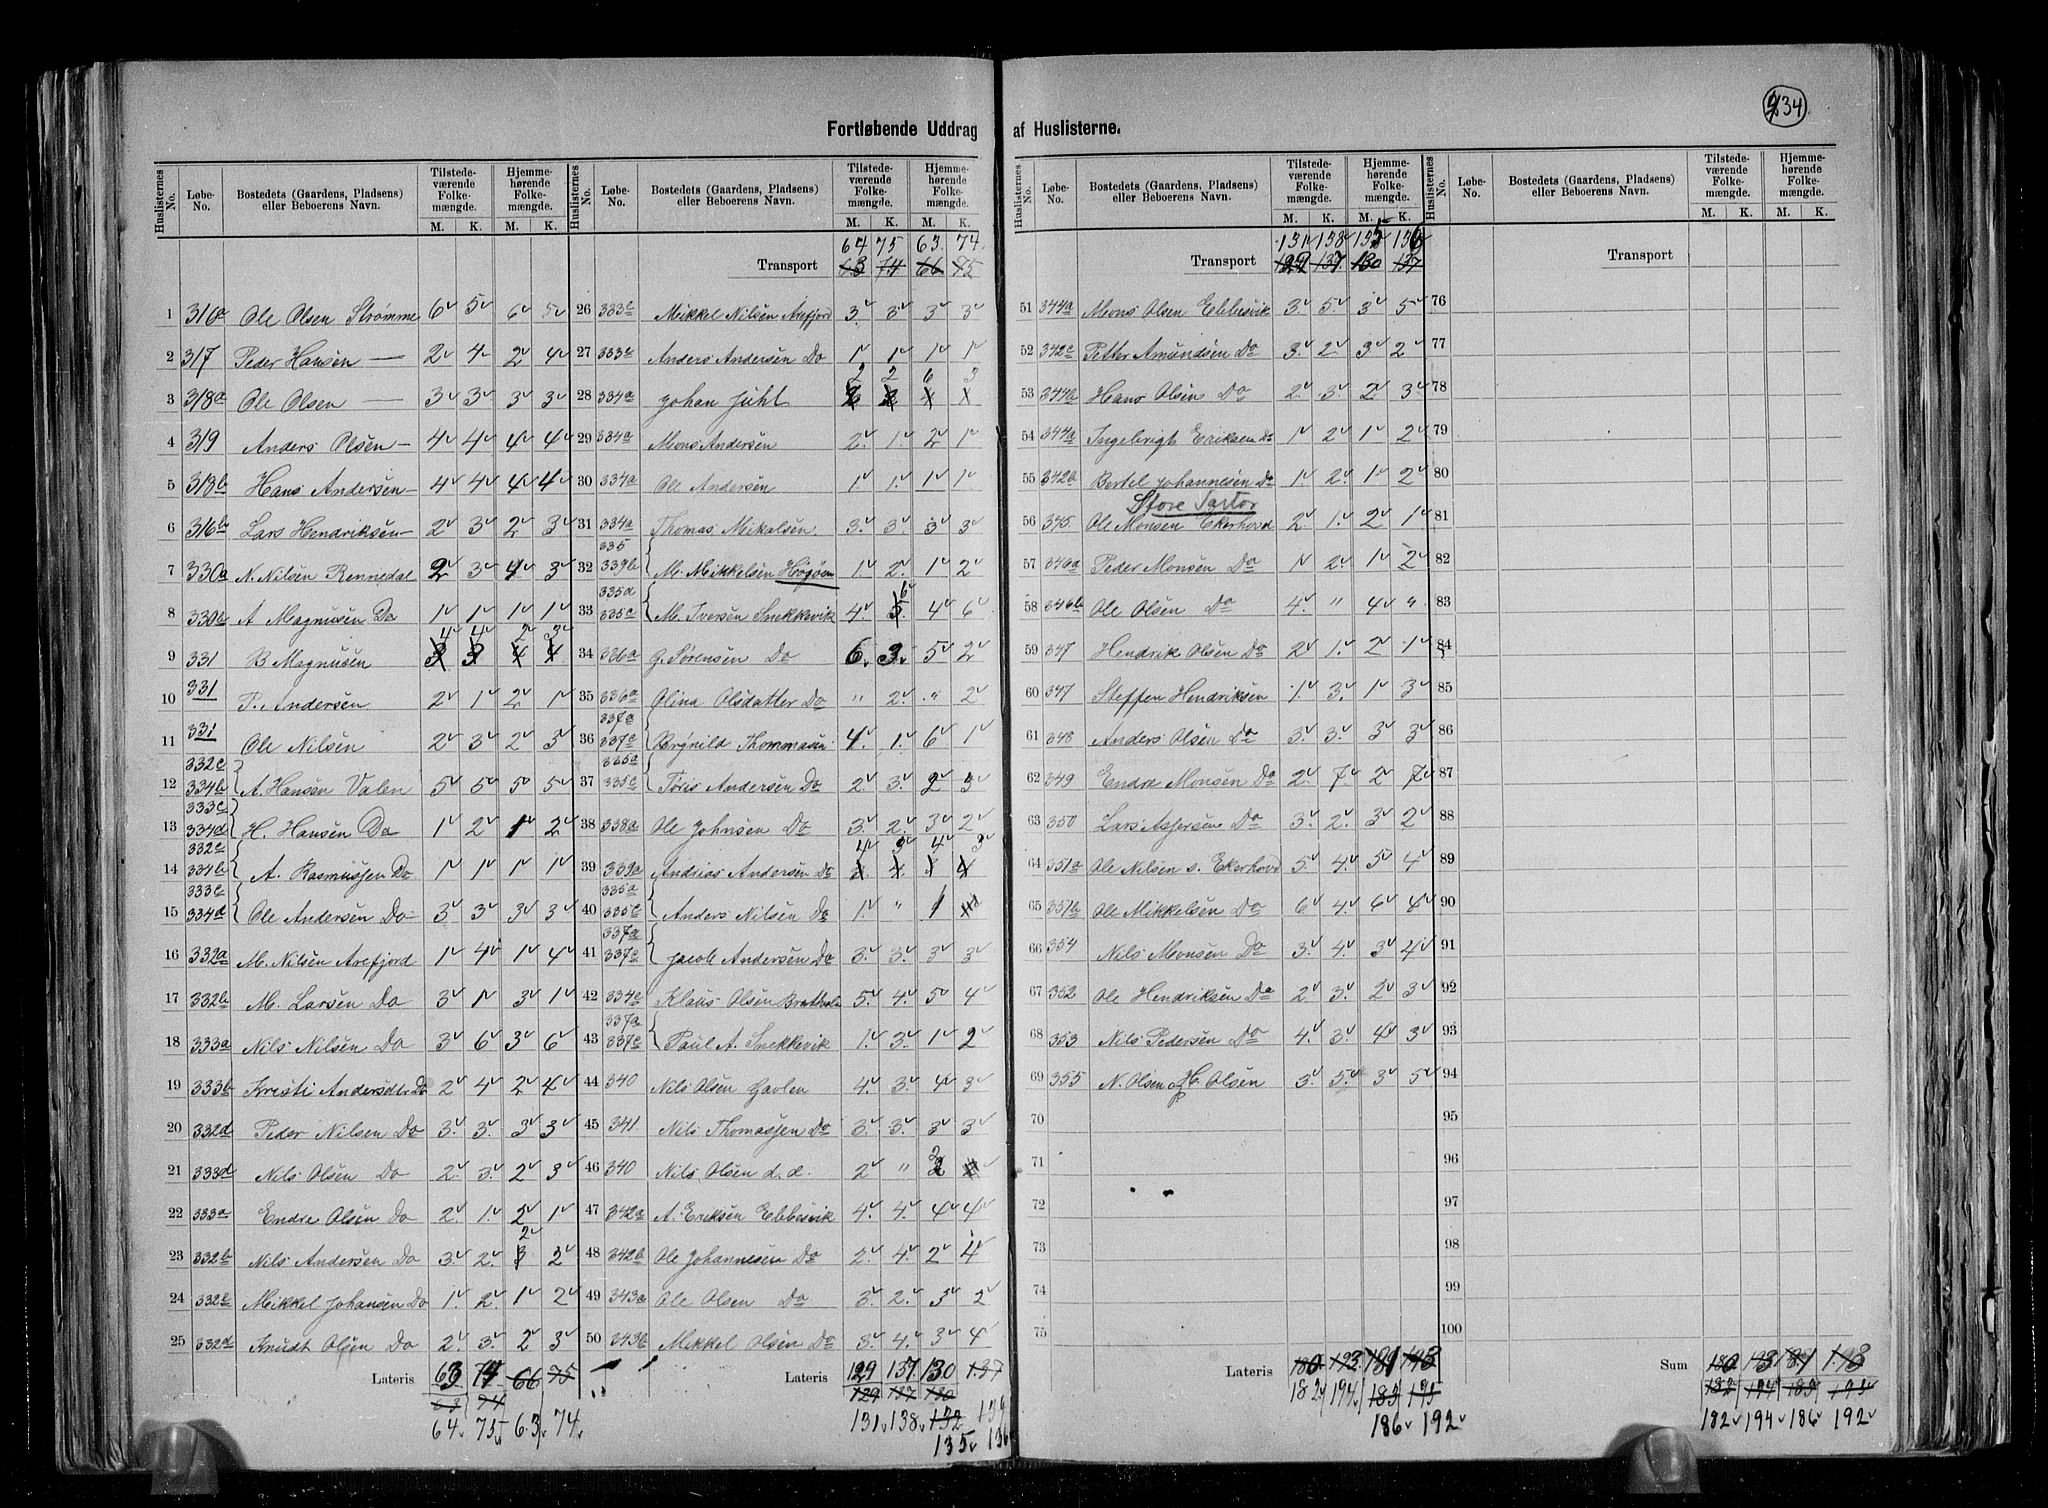 434
Fortløbende Uddrag af Huslisterne.
Huslisternes No. Løbe-No. Bostedets (Gaardens, Pladsens) eller Beboerens Navn. Tilstedeværende Folkemængde. Hjemmehørende Folkemængde.
M. K. M. K.
1 316a Ole Olsen Strømme 6 5 6 5
2 317 Peder Hansen — 2 4 2 4
3 318a Ole Olsen — 3 3 3 3
4 319 Anders Olsen — 4 4 4 4
5 318b Hans Andersen — 4 4 4 4
6 316b Lars Hendriksen — 2 3 2 3
7 330a N. Nilsen Rennedal 2 3 4 3
8 330b A Magnusen Do 1 1 1 1
9 331 B Magnusen 4 4 2 3
10 331 P. Andersen 2 1 2 1
11 331 Ole Nilsen 2 3 2 3
12 332c 334b A. Hansen Valen 5 5 5 5
13 333c 334d H. Hansen Do 1 2 1 2
14 332c 334b A. Rasmussen Do 1 1 1 1
15 333c 334d Ole Andersen Do 3 3 3 3
16 332a M. Nilsen Arefjord 1 4 1 4
17 332b M. Larsen Do 3 1 3 1
18 333a Nils Nilsen Do 3 6 3 6
19 333b Kristi Andersdtr Do 2 4 2 4
20 332d Peder Nilsen Do 3 3 3 3
21 333d Nils Olsen Do 2 3 2 3
22 333a Endre Olsen Do 2 1 2 1
23 332b Nils Andersen Do 3 2 2 2
24 332c Mikkel Johansen Do 1 2 1 2
25 332d Knudt Olsen Do 2 3 2 3
Lateris 63 74 66 75
63 74
64 75 63 74
Huslisternes No. Løbe-No. Bostedets (Gaardens, Pladsens) eller Beboerens Navn. Tilstedeværende Folkemængde. Hjemmehørende Folkemængde.
M. K. M. K.
64 75 63 74
Transport 63 74 66 75
26 333c Mikkel Nilsen Arefjord 3 3 3 3
27 333c Anders Andersen Do 1 1 1 1
28 334a Johan Juhl 2 2 6 3
29 334a Mons Andersen 2 1 2 1
30 334a Ole Andersen 1 1 1 1
31 334a Thomas Mikalsen 3 3 3 3
32 335 339b M. Mikkelsen Høgøen 1 2 1 2
33 335d 335c M. Iversen Snekkevik 4 6 4 6
34 336a G. Sørensen Do 6 3 5 2
35 336a Olina Olsdatter Do " 2 " 2
36 337a 337c Brynild Thommasen 4 1 6 1
37 335a 335c Tøris Andersen Do 2 3 2 3
38 338a Ole Johnsen Do 3 2 3 2
39 339a Andrias Andersen Do 4 3 4 3
40 335a 335c Anders Nilsen Do 1 " 1
41 337a 337c Jacob Andersen Do 3 3 3 3
42 334c Klaus Olsen Bratholm 5 4 5 4
43 337a 337c Paul A. Snekkevik 1 3 1 2
44 340 Nils Olsen Gavlen 4 3 4 3
45 341 Nils Thomassen Do 3 3 3 3
46 340 Nils Olsen d. d. 2 " 2
47 342a A. Eriksen Ebbesvik 4 4 4 4
48 342b Ole Johannesen Do 2 4 2 4
49 343a Ole Olsen Do 3 2 3 2
50 343b Mikkel Olsen Do 3 4 3 4
Lateris 129 137 130 137
129 137 130
131 138 132
135 136
Huslisternes No. Løbe-No. Bostedets (Gaardens, Pladsens) eller Beboerens Navn. Tilstedeværende Folkemængde. Hjemmehørende Folkemængde.
M. K. M. K.
131 138 135 136
Transport 129 137 130 137
51 344a Mons Olsen Ebbesvik 3 5 3 5
52 342c Petter Amundsen Do 3 2 3 2
53 344b Hans Olsen Do 2 3 2 3
54 344a Ingebrigt Eriksen Do 1 2 1 2
55 342b Bertel Johannesen Do 1 2 1 2
Store Sartor
56 345 Ole Monsen Ekerhovd 2 1 2 1
57 346a Peder Monsen Do 1 2 1 2
58 346b Ole Olsen Do 4 " 4 "
59 347 Hendrik Olsen Do 2 1 2 1
60 347 Steffen Hendriksen 1 3 1 3
61 348 Anders Olsen Do 3 3 3 3
62 349 Endre Monsen Do 2 7 2 7
63 350 Lars Asjersen Do 3 2 3 2
64 351a Ole Nilsen s. Ekerhovd 5 4 5 4
65 351b Ole Mikkelsen Do 6 4 6 4
66 354 Nils Monsen Do 3 4 3 4
67 352 Ole Hendriksen Do 2 3 2 3
68 353 Nils Pedersen Do 4 3 4 3
69 355 N. Olsen og H. Olsen 3 5 3 5
70
71
72
73
74
75
Lateris 180 193 181 193
182 194 183 195
186 192
Huslisternes No. Løbe-No. Bostedets (Gaardens, Pladsens) eller Beboerens Navn. Tilstedeværende Folkemængde. Hjemmehørende Folkemængde.
M. K. M. K.
Transport
76
77
78
79
80
81
82
83
84
85
86
87
88
89
90
91
92
93
94
95
96
97
98
99
100
Sum 180 193 181 193
182 194 183 195
182 194 186 192